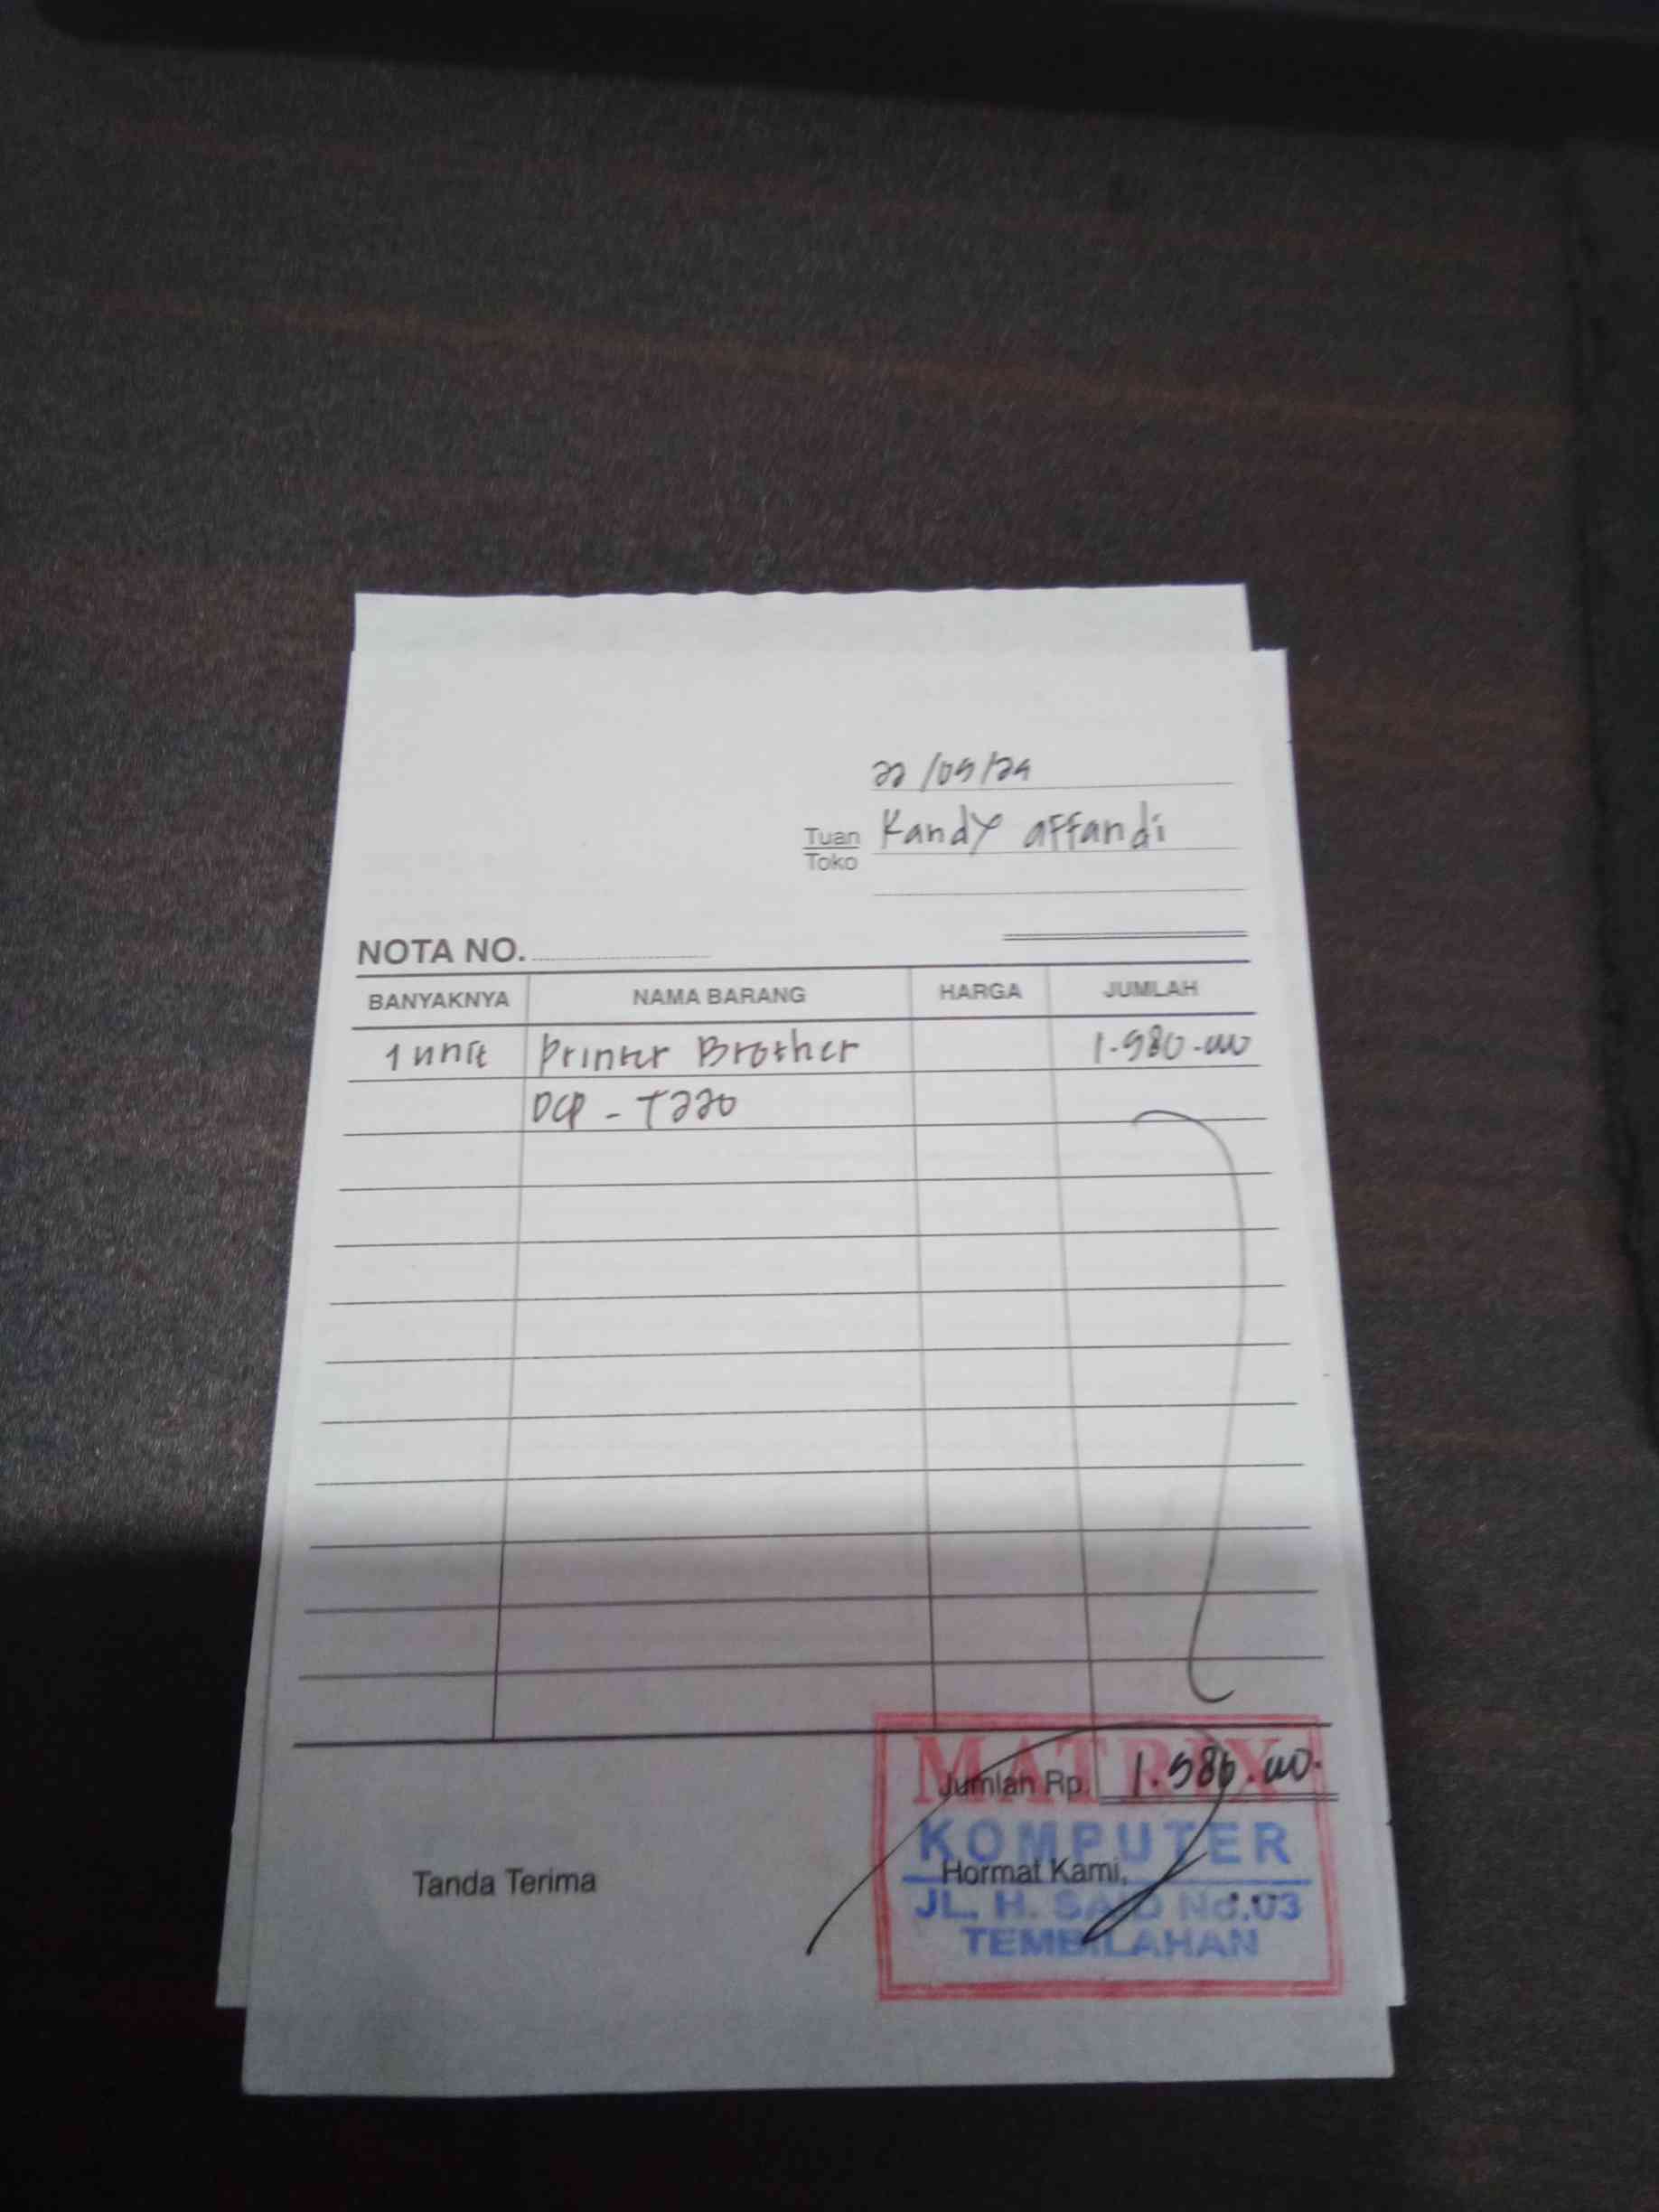 22/05/24
Tuan Kandy affandi
Toko
NOTA NO.
BANYAKNYA NAMA BARANG HARGA JUMLAH
1 unit Printer Brother 1.980.000
DCP - T220
MATRIX
Jumlah Rp. 1.980.000.
KOMPUTER
Tanda Terima Hormat Kami,
JL. H. SAID No.03
TEMBILAHAN